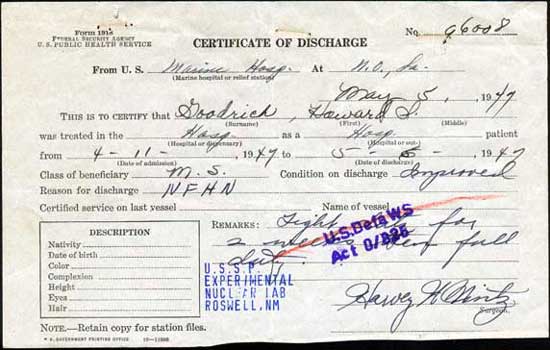 Form 1918
FEDERAL SECURITY AGENCY
U. S. PUBLIC HEALTH SERVICE
No. 96008
CERTIFICATE OF DISCHARGE
From U. S. Marine Hosp. At N.O., La.
(Marine hospital or relief station)
May 5, 1947
THIS IS TO CERTIFY that Goodrich, Howard
(Surname) (First) (Middle)
was treated in the Hosp. as a Hosp. patient
(Hospital or dispensary) (Hospital or out-)
from 4-11- 1947 to 5-5- 1947
(Date of admission) (Date of discharge)
Class of beneficiary M.S. Condition on discharge Improved
Reason for discharge NFHN
Certified service on last vessel Name of vessel
DESCRIPTION
Nativity
Date of birth
Color
Complexion
Height
Eyes
Hair
REMARKS: Light duty for
2 weeks then full
duty.
U.S. Defa WS
Act 0/325
U.S.S.P.
EXPERIMENTAL
NUCLEAR LAB
ROSWELL, NM
Harvey
Surgeon.
NOTE.—Retain copy for station files.
U. S. GOVERNMENT PRINTING OFFICE